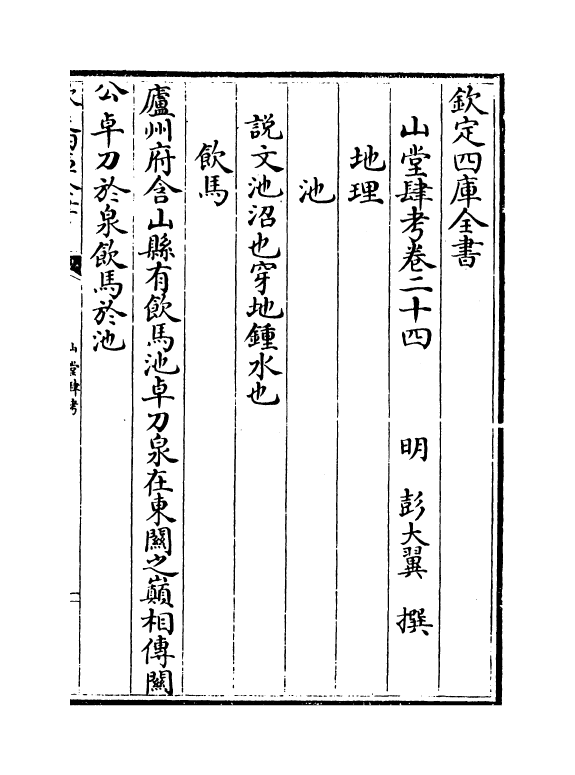 欽定四庫全書
山堂肆考卷二十四 明 彭大翼 撰
地理
池
説文池沼也穿地鍾水也
飲馬
廬州府含山縣有飲馬池卓刀泉在東闗之巔相傳闗
公卓刀於泉飲馬於池
山堂肆考
一